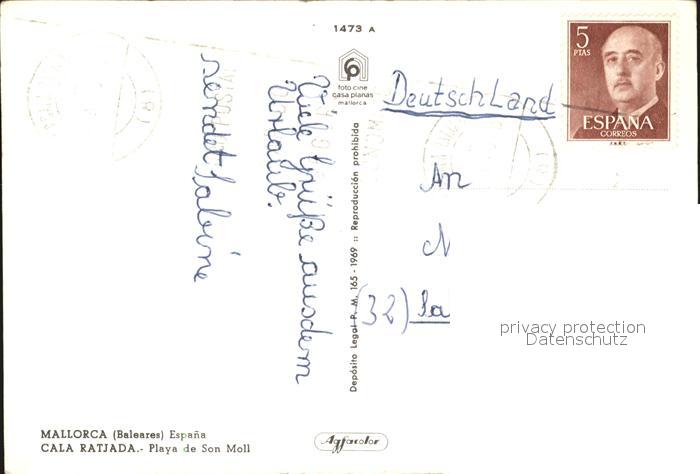 1473 A
foto cine
casa planas
mallorca
5
PTAS
ESPAÑA
CORREOS
Deutschland
An
N
(32) Sa
Viele Grüße aus dem
Urlaub.
sendet Sabine
Depósito Legal P. M. 165 - 1969 :: Reproducción prohibida
privacy protection
Datenschutz
MALLORCA (Baleares) España
CALA RATJADA.- Playa de Son Moll
Agfacolor